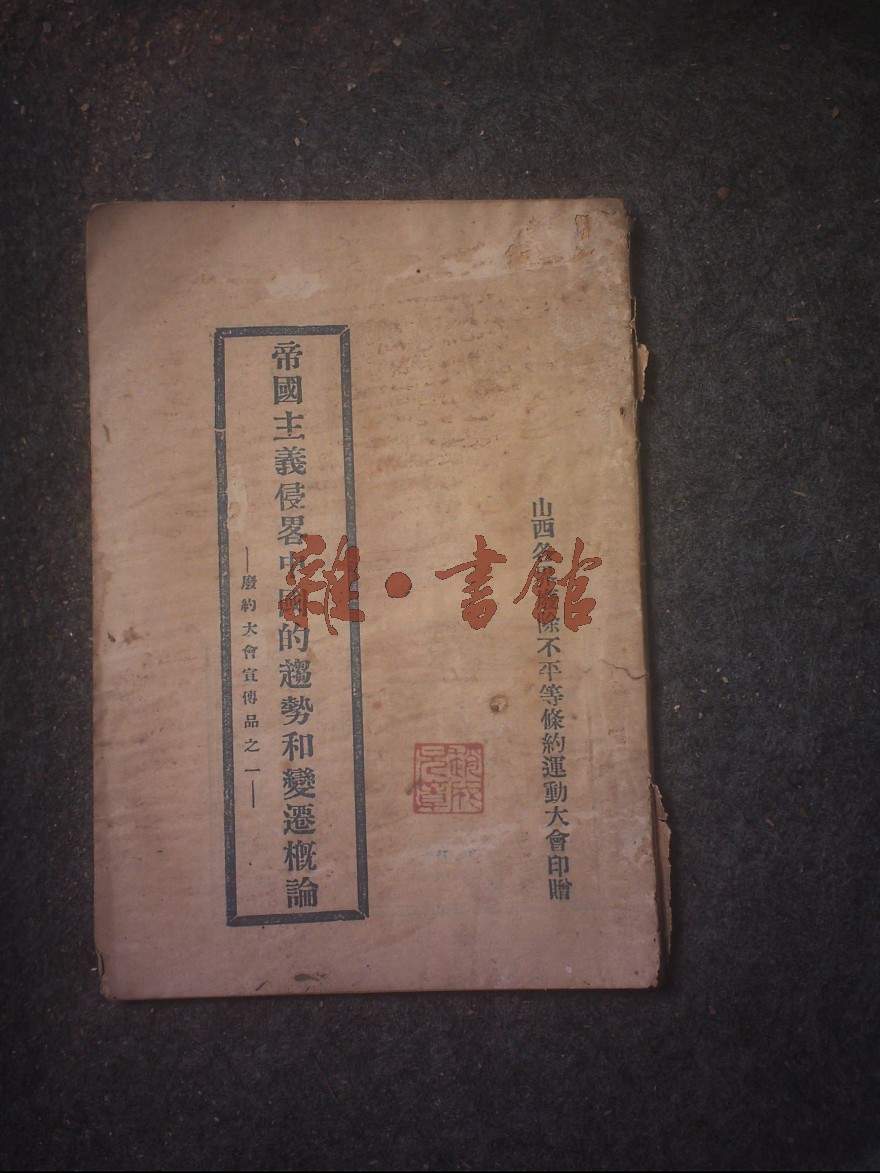 山西各除不平等條約運動大會印贈
帝國主義侵畧中國的趨勢和變遷槪論
—廢約大會宣傳品之一—
雜·書館